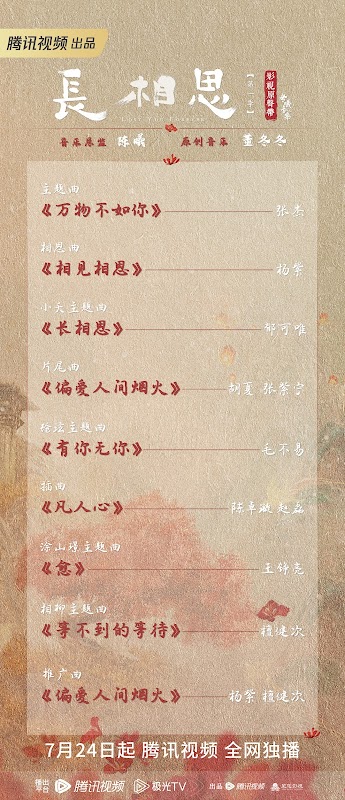 腾讯视频 出品
長相思
【第一季】
影视原聲帶
Lost You Forever
音乐总监 陈曦 原创音乐 董冬冬
主题曲
《万物不如你》 张杰
相思曲
《相见相思》 杨紫
小夭主题曲
《长相思》 郁可唯
片尾曲
《偏爱人间烟火》 胡夏 张紫宁
玱玹主题曲
《有你无你》 毛不易
插曲
《凡人心》 陈卓璇 赵磊
涂山璟主题曲
《愈》 王铮亮
相柳主题曲
《等不到的等待》 檀健次
推广曲
《偏爱人间烟火》 杨紫 檀健次
7月24日起 腾讯视频 全网独播
播出平台 腾讯视频 极光TV 出品 腾讯视频